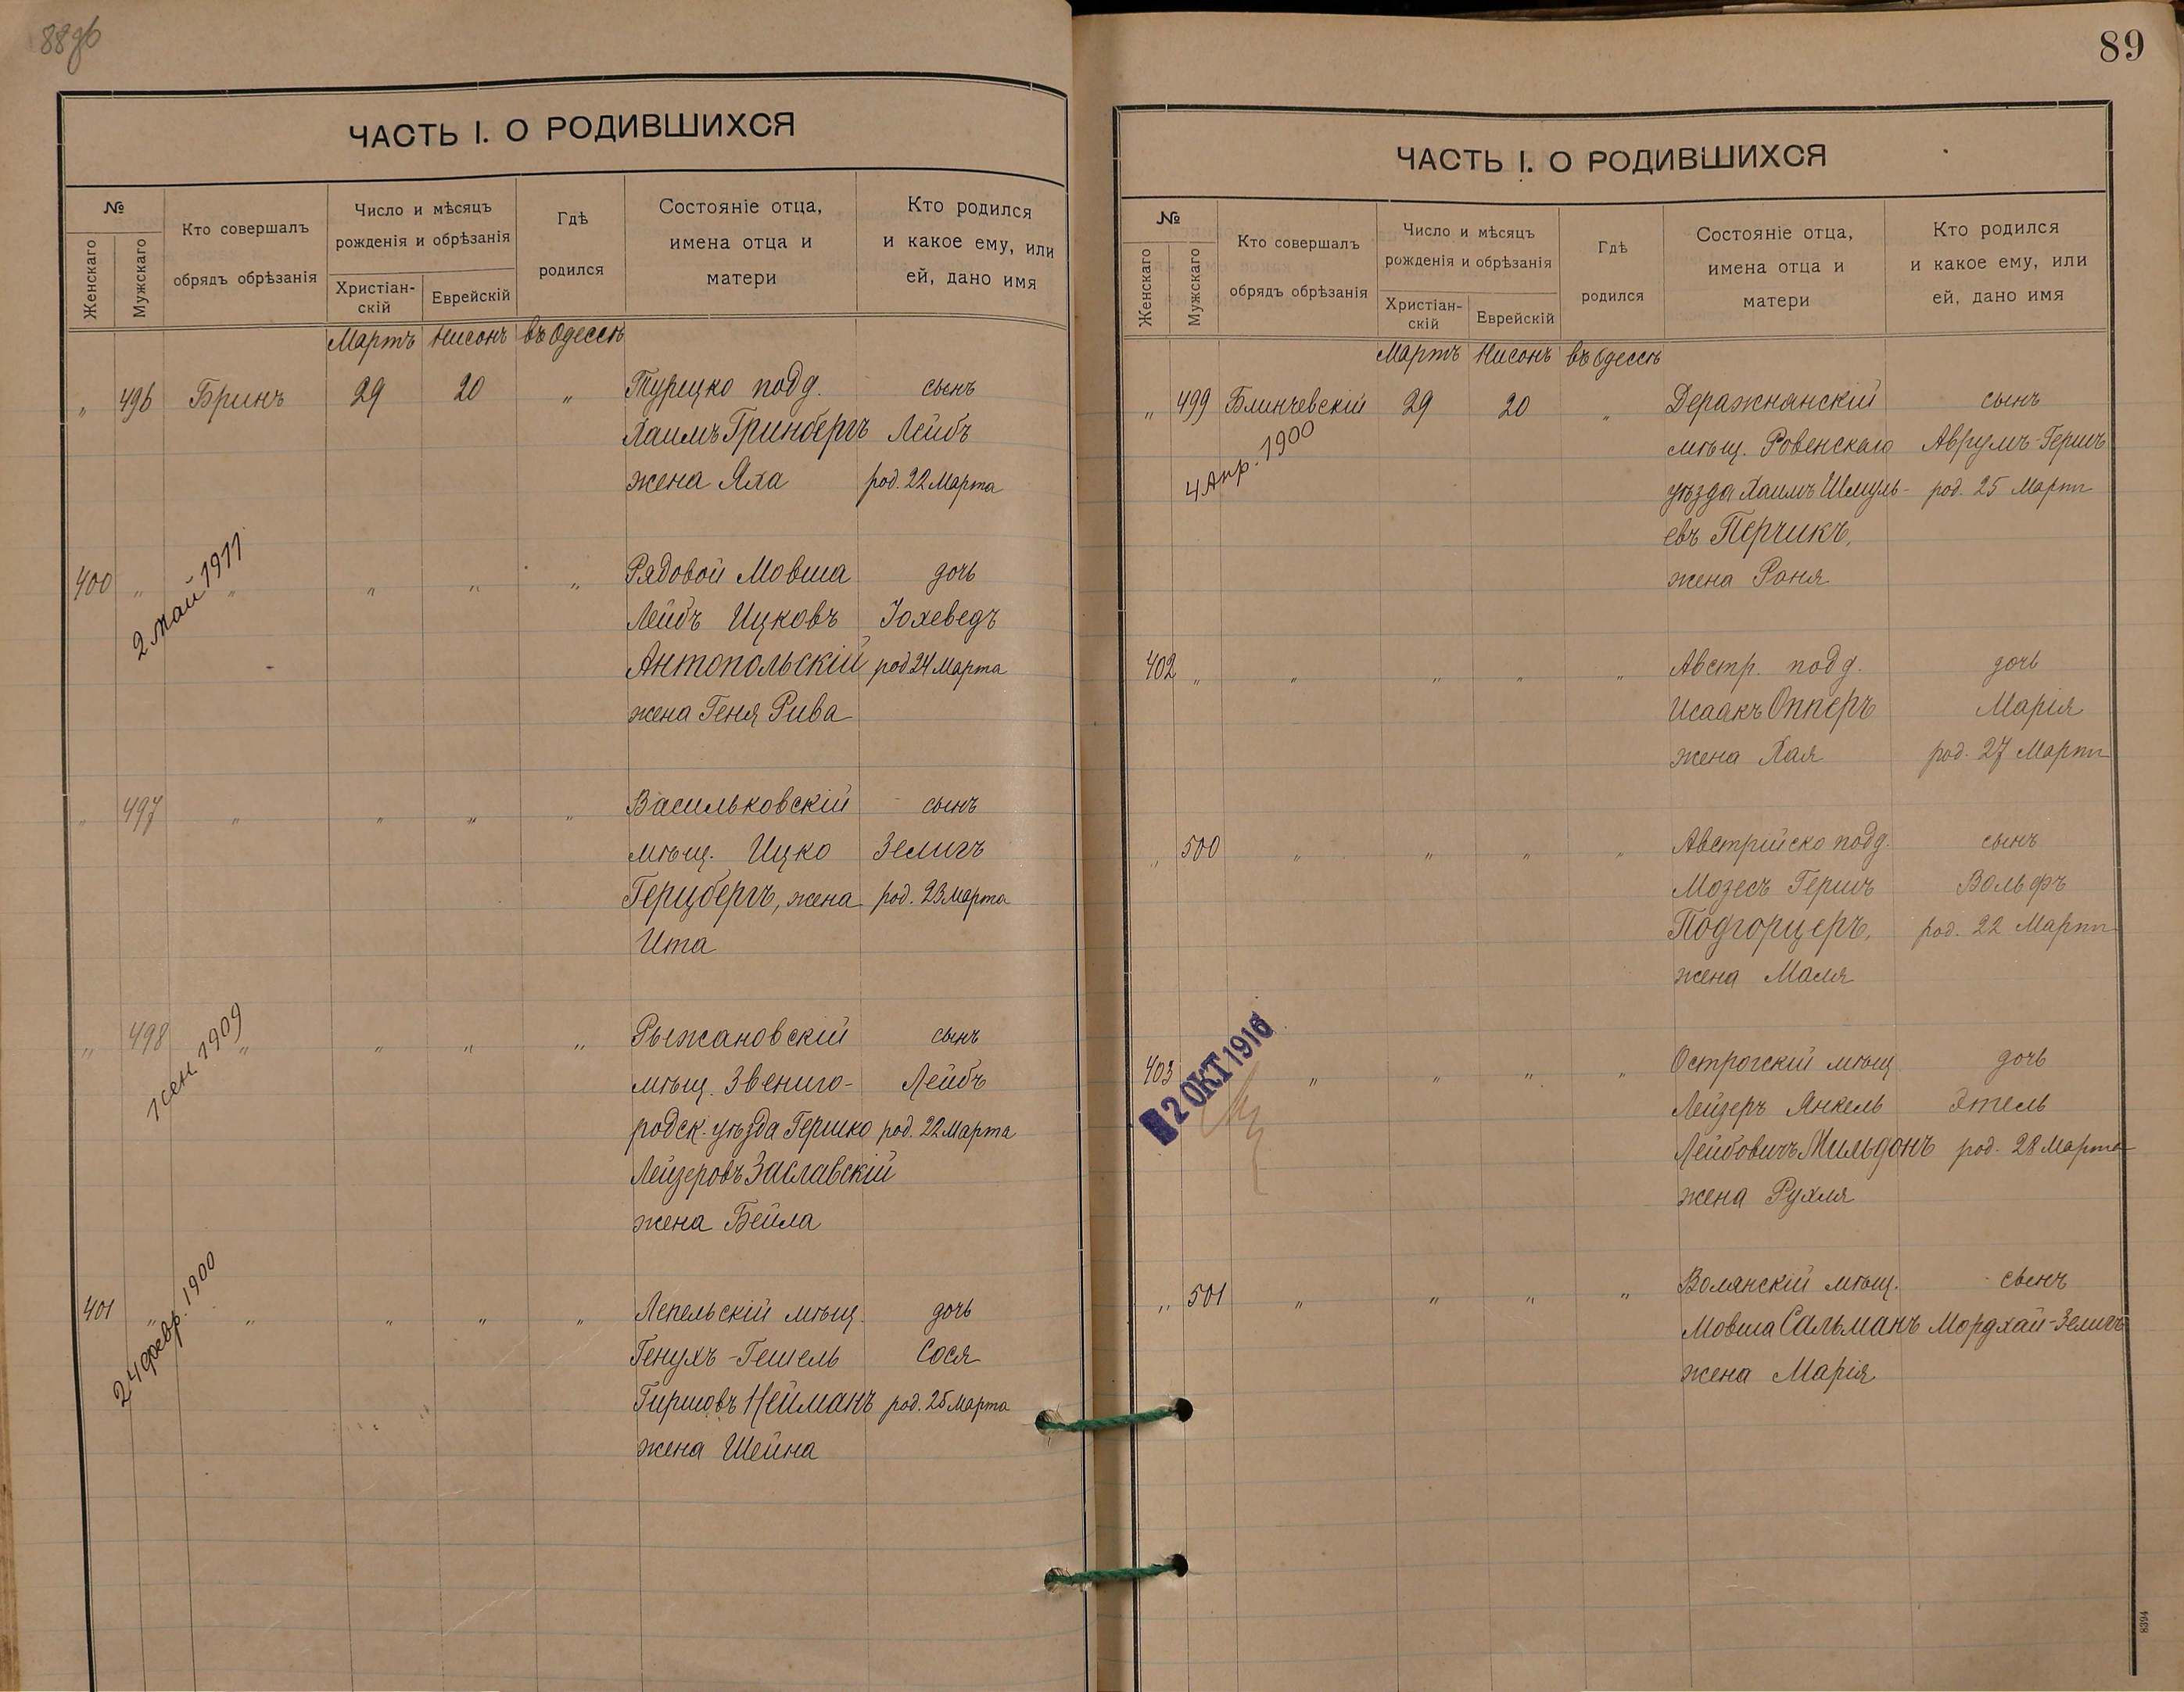 88об
ЧАСТЬ I. О РОДИВШИХСЯ
№
Женскаго
Мужскаго
Кто совершалъ
обрядъ обрѣзанія
Число и мѣсяцъ
рожденія и обрѣзанія
Христіан-
скій
Еврейскій
Гдѣ
родился
Состояніе отца,
имена отца и
матери
Кто родился
и какое ему, или
ей, дано имя
Мартъ Нисонъ въ Одессѣ
„ 496 Бринъ 29 20 „ Турецко подд. сынъ
Хаимъ Гринбергъ Лейбъ
жена Яха род. 22 Марта
2 Май 1911
400 „ „ „ „ „ Рядовой Мовша дочь
Лейбъ Ицковъ Іохеведъ
Антопольскій род 24 Марта
жена Геня Рива
„ 497 „ „ „ „ Васильковскій сынъ
мѣщ. Ицко Зелигъ
Герцбергъ, жена род. 23 Марта
Ита
1 сен. 1909
„ 498 „ „ „ „ Рыжановскій сынъ
мѣщ. Звениго- Лейбъ
родск. уѣзда Гершко род. 22 Марта
Лейзеровъ Заславскій
жена Бейла
24 февр. 1900
401 „ „ „ „ „ Лепельскій мѣщ. дочь
Генухъ-Гешель Сося
Гиршовъ Нейманъ род. 25 Марта
жена Шейна
89
ЧАСТЬ I. О РОДИВШИХСЯ
№
Женскаго
Мужскаго
Кто совершалъ
обрядъ обрѣзанія
Число и мѣсяцъ
рожденія и обрѣзанія
Христіан-
скій
Еврейскій
Гдѣ
родился
Состояніе отца,
имена отца и
матери
Кто родился
и какое ему, или
ей, дано имя
Мартъ Нисонъ въ Одессѣ
„ 499 Блинчевскій 29 20 „ Деражнянскій сынъ
4 Апр. 1900
мѣщ. Ровенскаго Аврумъ-Гершъ
уѣзда Хаимъ Шмуль- род. 25 Марта
евъ Перчикъ,
жена Роня
402 „ „ „ „ „ Австр. подд. дочь
Исаакъ Опперъ Марія
жена Хая род. 27 Марта
„ 500 „ „ „ „ Австрійско подд. сынъ
Мозесъ Гершъ Вольфъ
Подгорцеръ, род. 22 Марта
жена Маля
2 ОКТ 1916
403 „ „ „ „ Острогскій мѣщ дочь
Лейзеръ Янкель Этель
Лейбовичъ Жильдонъ род. 28 Марта
жена Рухля
„ 501 „ „ „ „ Волянскій мѣщ. сынъ
Мовша Сальманъ Мордхай-Зелигъ
жена Марія
8394